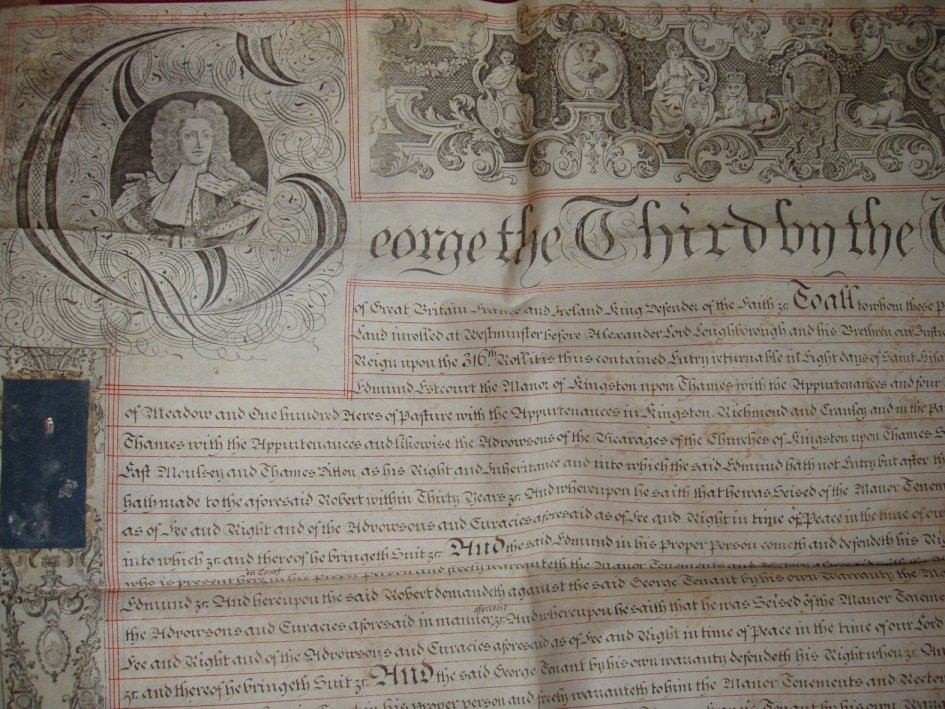 George the Third by the
of Great Britain France and Ireland King Defender of the Faith &c. To all to whom these
Land inrolled at Westminster before Alexander Lord Loughborough and his Brethren our
Reign upon the 316th Roll it is thus contained Entry returnable in Eight days of Saint
Edmund Estcourt the Manor of Kingston upon Thames with the Appurtenances and four
of Meadow and One hundred Acres of Pasture with the Appurtenances in Kingston Richmond and and in the
Thames with the Appurtenances and likewise the Advowsons of the Vicarages of the Churches of Kingston upon Thames
East Moulsey and Thames Ditton as his Right and Inheritance and into which the said Edmund hath not Entry but after the
hath made to the aforesaid Robert within Thirty Years &c. And whereupon he saith that he was Seised of the Manor
as of Fee and Right and of the Advowsons and Curacies aforesaid as of Fee and Right in time of Peace in the time of our
into which &c. and thereof he bringeth Suit &c. And the said Edmund in his Proper Person cometh and defendeth his
who is present here in Court in his proper person and freely warranteth the Manor Tenements and
Edmund &c. And hereupon the said Robert demandeth against the said George Tenant by his own Warranty the
the Advowsons and Curacies aforesaid in manner aforesaid &c. And whereupon he saith that he was Seised of the Manor
Fee and Right and of the Advowsons and Curacies aforesaid as of Fee and Right in time of Peace in the time of our Lord
&c. and thereof he bringeth Suit &c. And the said George Tenant by his own warranty defendeth his Right when &c.
his proper person and freely warranteth to him the Manor Tenements and
Tenant by his own